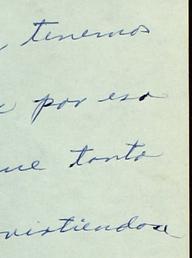 , tenemos
por eso
ue tanto
vistiendose